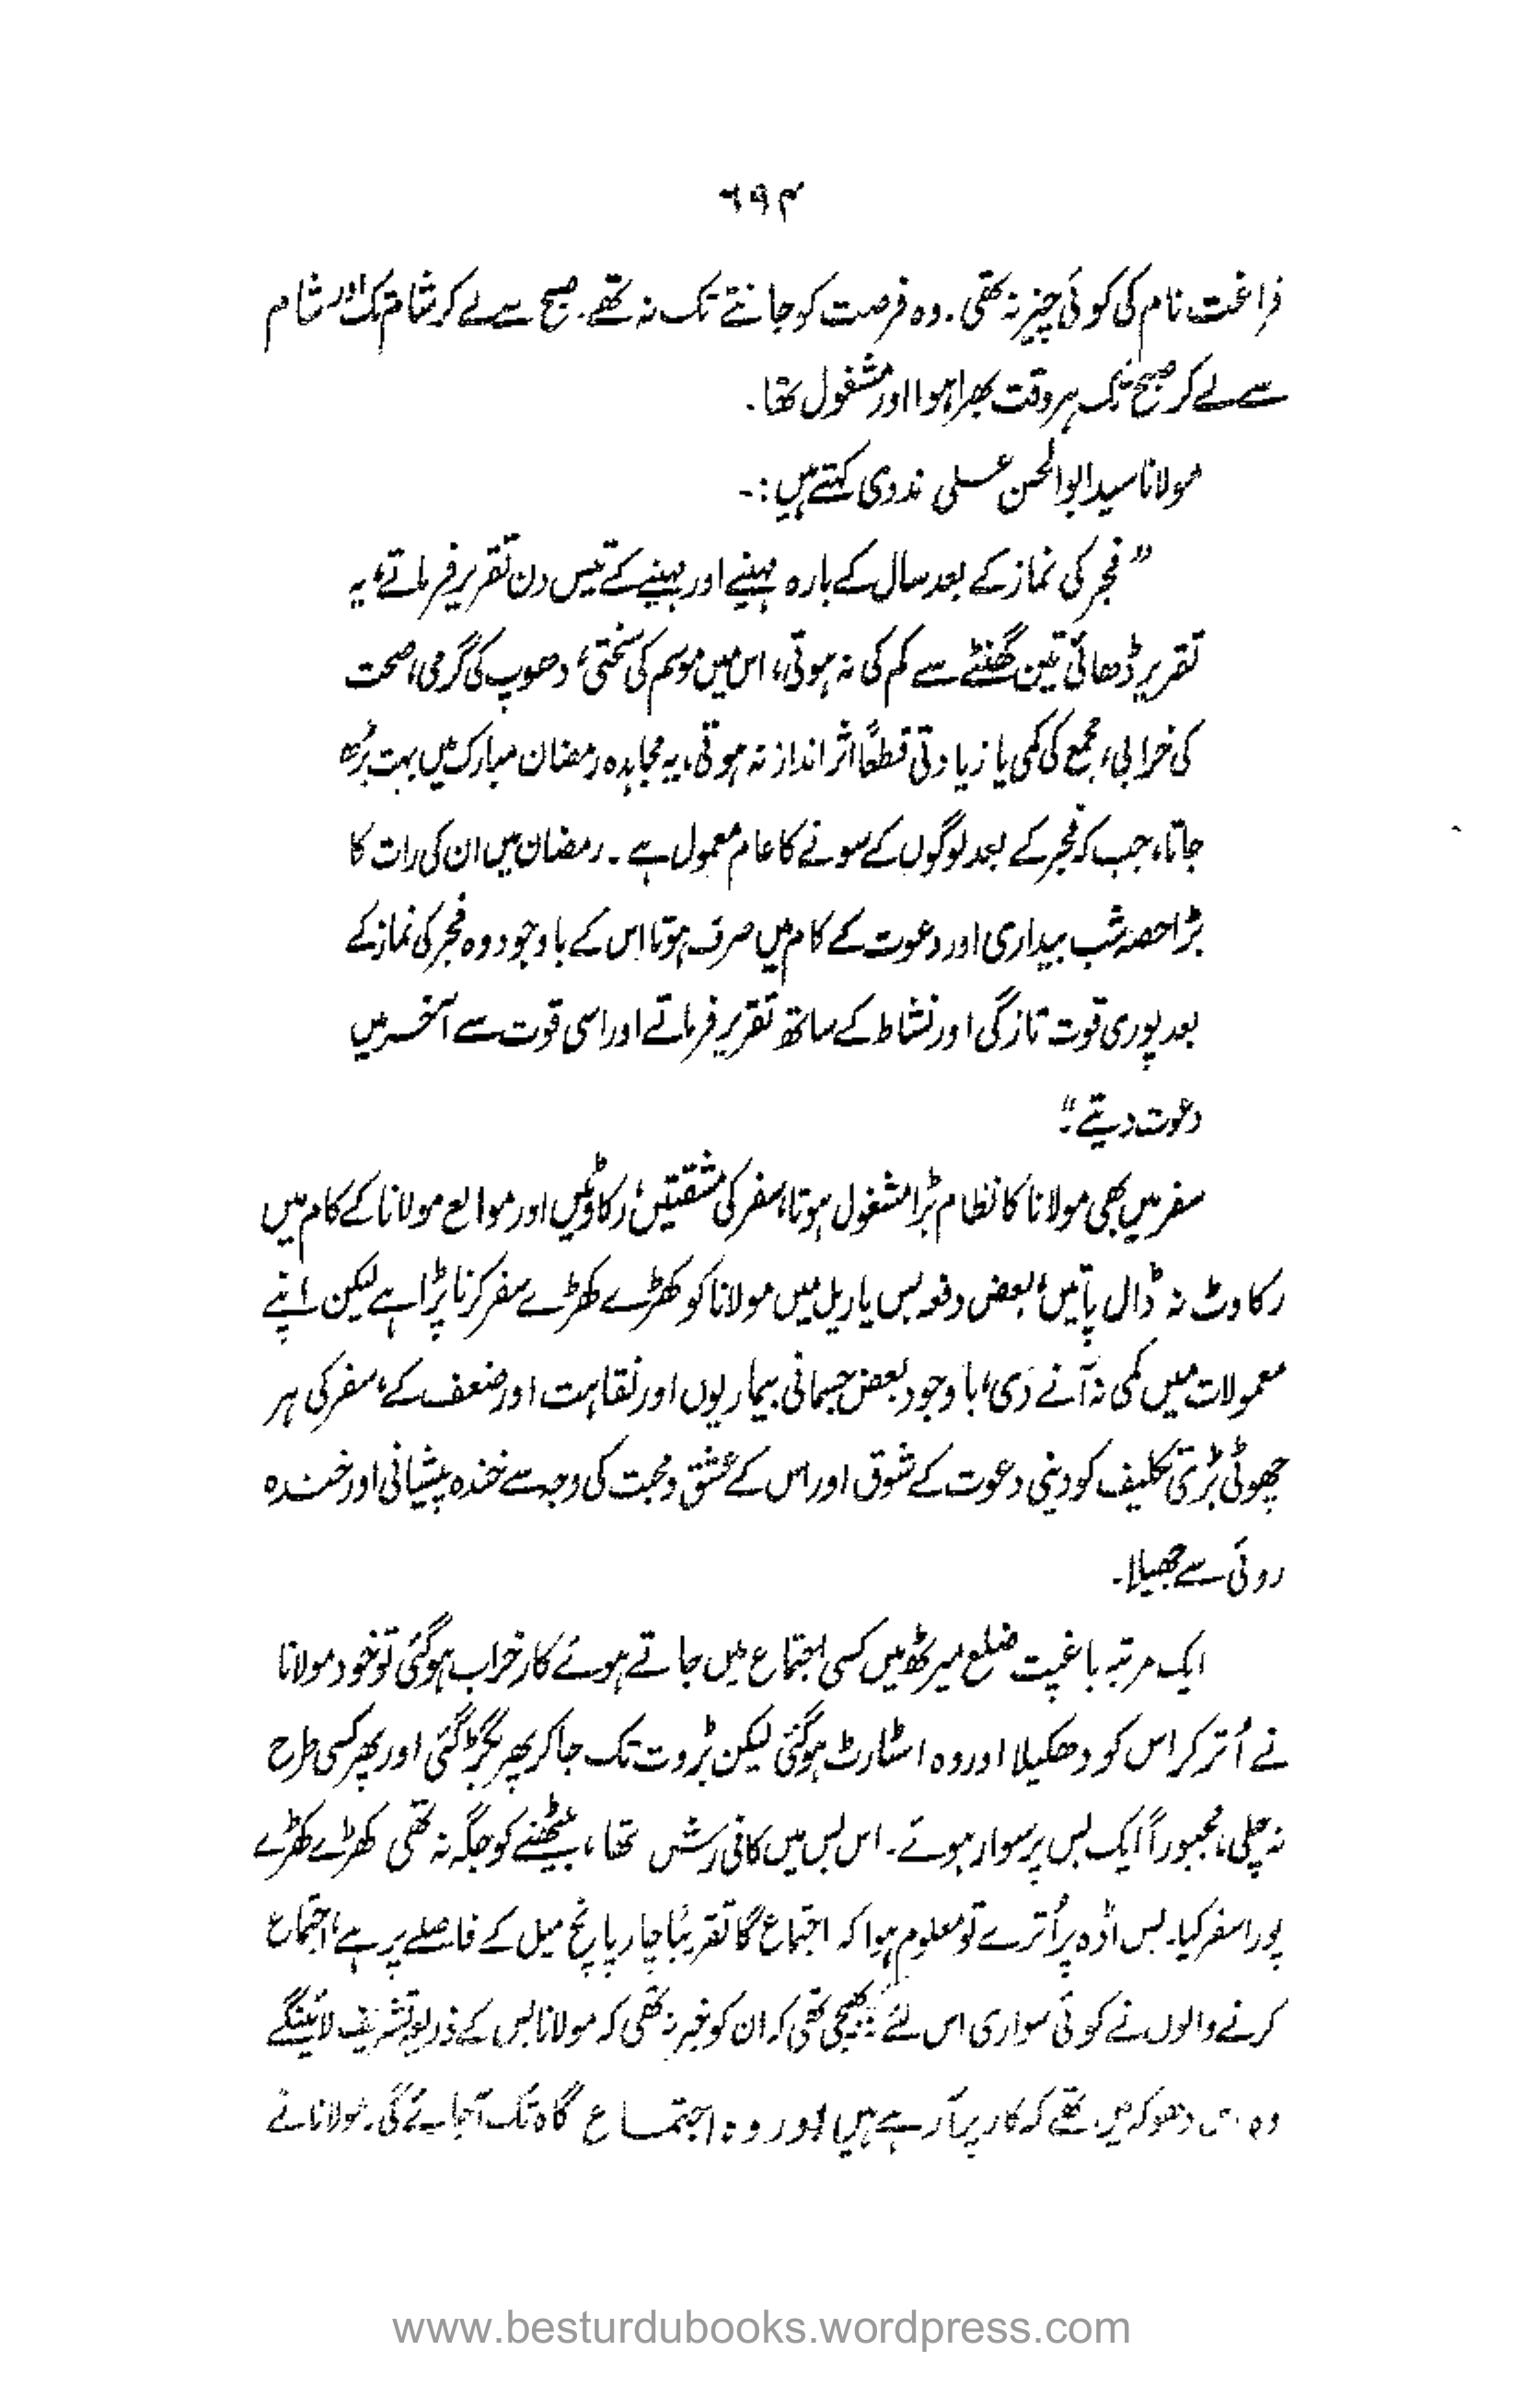 ۶۹۴
فراغت نام کی کوئی چیز نہ تھی۔ وہ فرصت کو جانتے تک نہ تھے۔ صبح سے لے کر شام تک اور شام
سے لے کر صبح تک ہر وقت بھرا ہوا اور مشغول تھا۔
مولانا سید ابوالحسن علی ندوی کہتے ہیں :-
”فجر کی نماز کے بعد سال کے بارہ مہینے اور مہینے کے تیس دن تقریر فرماتے، یہ
تقریر ڈھائی تین گھنٹے سے کم کی نہ ہوتی، اس میں موسم کی سختی، دھوپ کی گرمی، صحت
کی خرابی، مجمع کی کمی یا زیادتی قطعاً اثر انداز نہ ہوتی، یہ مجاہدہ رمضان مبارک میں بہت بڑھ
جاتا، جب کہ فجر کے بعد لوگوں کے سونے کا عام معمول ہے۔ رمضان میں ان کی رات کا
بڑا حصہ شب بیداری اور دعوت کے کام میں صرف ہوتا اس کے باوجود وہ فجر کی نماز کے
بعد پوری قوت تازگی اور نشاط کے ساتھ تقریر فرماتے اور اسی قوت سے آخر میں
دعوت دیتے۔“
سفر میں بھی مولانا کا نظام بڑا مشغول ہوتا، سفر کی مشقتیں، رکاوٹیں اور موانع مولانا کے کام میں
رکاوٹ نہ ڈال پاتیں، بعض دفعہ بس یا ریل میں مولانا کو کھڑے کھڑے سفر کرنا پڑا ہے لیکن اپنے
معمولات میں کمی نہ آنے دی، باوجود بعض جسمانی بیماریوں اور نقاہت اور ضعف کے، سفر کی ہر
چھوٹی بڑی تکلیف کو دینی دعوت کے شوق اور اس کے عشق و محبت کی وجہ سے خندہ پیشانی اور خندہ
روئی سے جھیلا۔
ایک مرتبہ باغپت ضلع میرٹھ میں کسی اجتماع میں جاتے ہوئے کار خراب ہوگئی تو خود مولانا
نے اُتر کر اس کو دھکیلا اور وہ اسٹارٹ ہوگئی لیکن بڑوت تک جا کر پھر بگڑ گئی اور پھر کسی طرح
نہ چلی، مجبوراً ایک بس پر سوار ہوئے۔ اس بس میں کافی رش تھا، بیٹھنے کو جگہ نہ تھی کھڑے کھڑے
پورا سفر کیا۔ بس اڈہ پر اُترے تو معلوم ہوا کہ اجتماع گا تقریباً چار پانچ میل کے فاصلے پر ہے، اجتماع
کرنے والوں نے کوئی سواری اس لئے نہ بھیجی تھی کہ ان کو خبر نہ تھی کہ مولانا بس کے ذریعہ تشریف لائینگے
وہ اس دھوکہ میں تھے کہ کار پر آ رہے ہیں اور وہ اجتماع گاہ تک آ جائے گی۔ مولانا نے
www.besturdubooks.wordpress.com